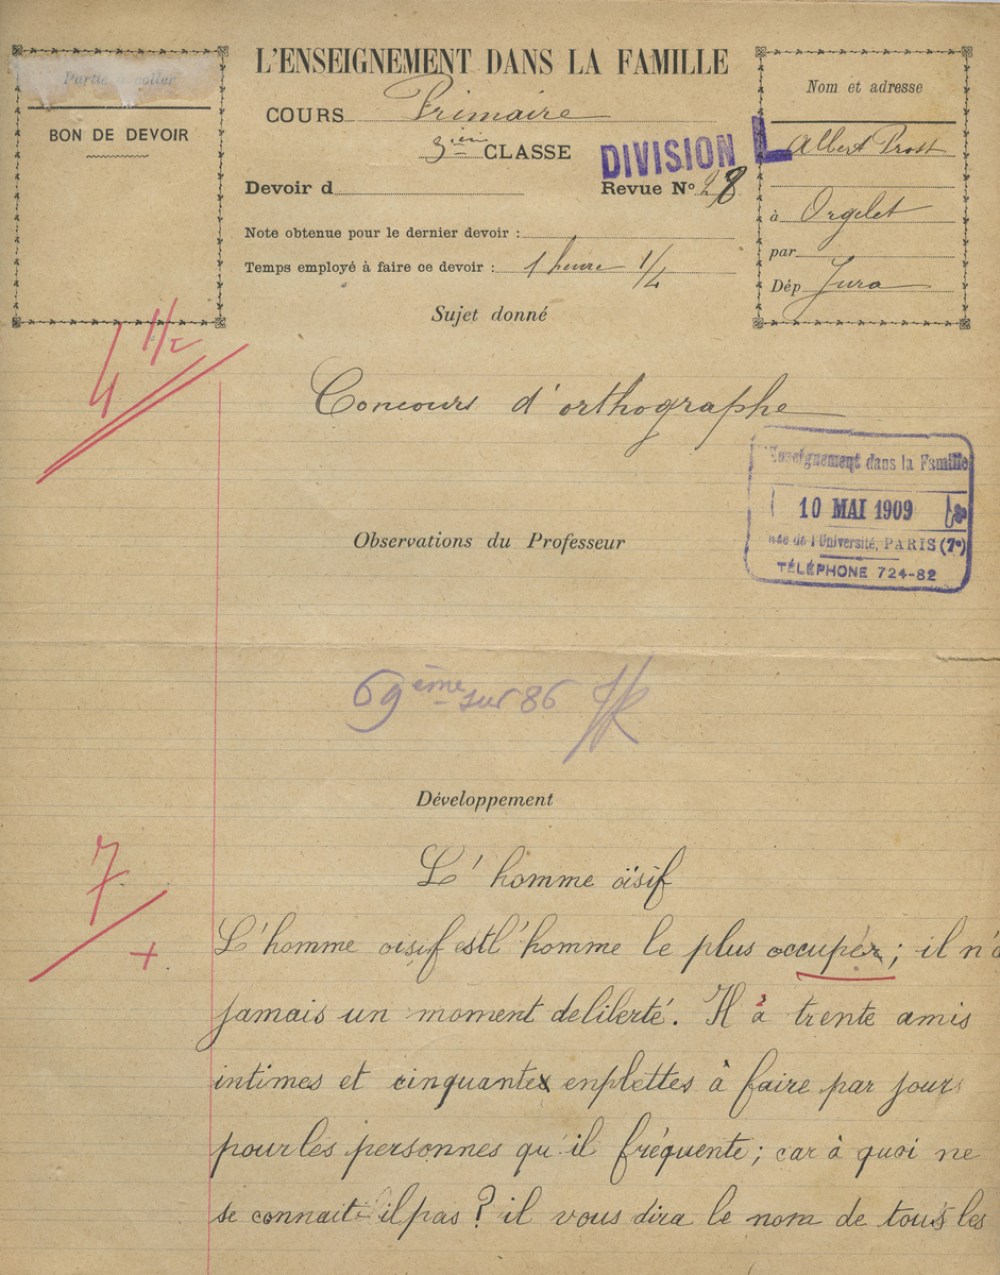 L'ENSEIGNEMENT DANS LA FAMILLE
Partie à coller
BON DE DEVOIR
COURS Primaire
3ième CLASSE
DIVISION L
Devoir d
Revue N° 28
Note obtenue pour le dernier devoir :
Temps employé à faire ce devoir : 1 heure 1/4
Nom et adresse
Albert Prost
à Orgelet
par
Dép Jura
Sujet donné
4 1/2
Concours d'orthographe
Enseignement dans la Famille
10 MAI 1909
Rue de l'Université, PARIS (7e)
TÉLÉPHONE 724-82
Observations du Professeur
69ème sur 86
Développement
7
L'homme oisif
+
L'homme oisif est l'homme le plus occupér; il n'a
jamais un moment deliberté. Il à trente amis
intimes et cinquantes enplettes à faire par jour
pour les personnes qu'il fréquente; car à quoi ne
se connait il pas? il vous dira le nom de tous les